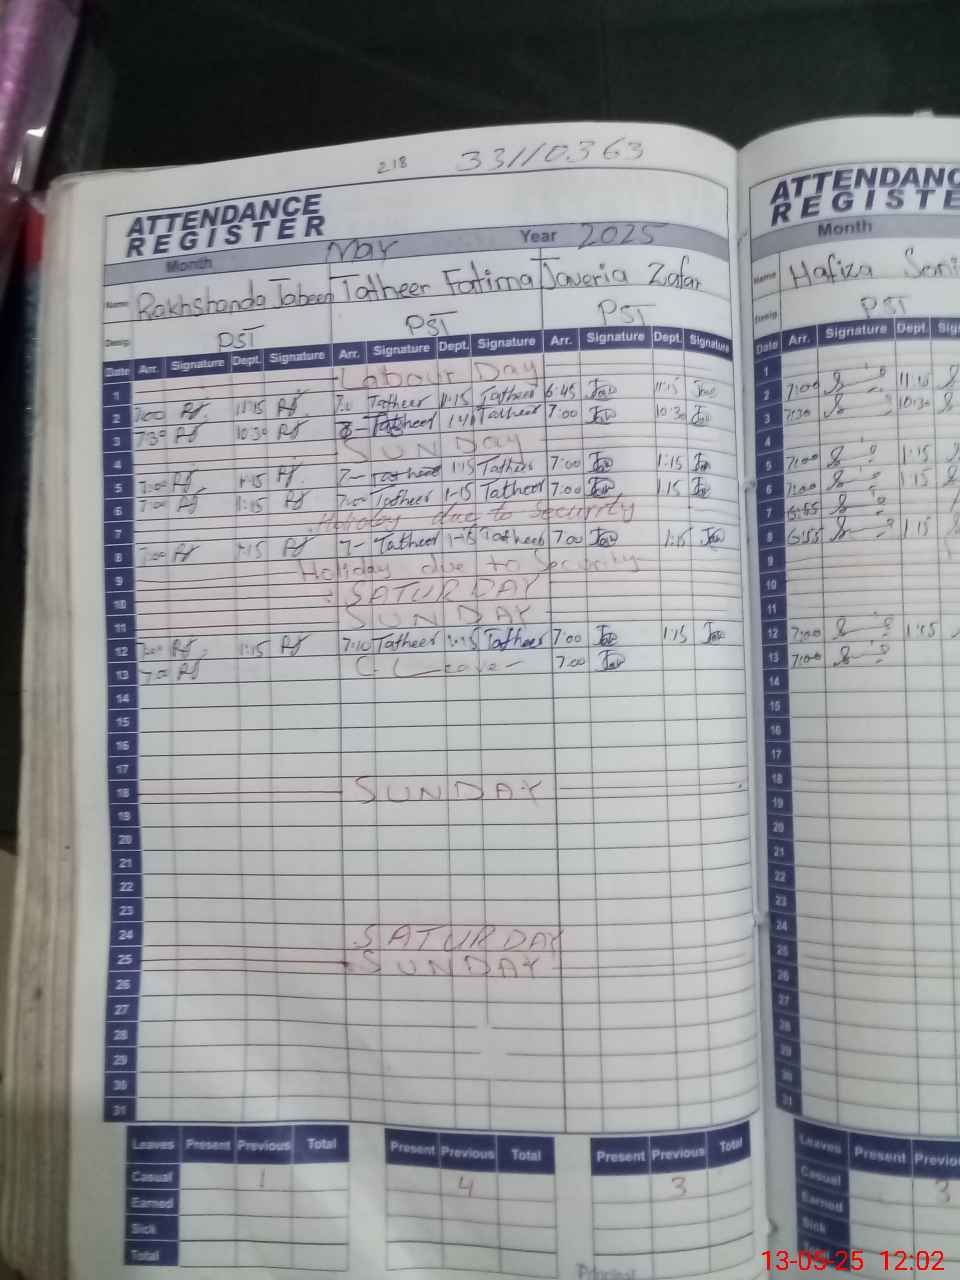 218 33110363
ATTENDANCE REGISTER
Month May Year 2025
Name Rakhshanda Jabeen Tatheer Fatima Javeria Zafar
Desig. PST PST PST
Date Arr. Signature Dept. Signature Arr. Signature Dept. Signature Arr. Signature Dept. Signature
1 Labour Day
2 7:00 11:15 Tatheer 11:15 Tatheer 6:45 Jav 11:15 Jav
3 7:30 10:30 Tatheer Tatheer 7:00 Jav 10:30 Jav
4 SUNDay
5 7:00 1:15 7- Tatheer 1:15 Tatheer 7:00 Jav 1:15 Jav
6 7:00 1:15 7:00 Tatheer 1-15 Tatheer 7:00 Jav 1:15 Jav
7 Holiday due to Security
8 7:00 1:15 7- Tatheer 1-15 Tatheer 7:00 Jav 1:15 Jav
9 Holiday due to Security
10 SATURDAY
11 SUNDAY
12 7:00 1:15 7:10 Tatheer 1:15 Tatheer 7:00 Jav 1:15 Jav
13 7:00 C-Leave- 7:00 Jav
14
15
16
17
18 SUNDAY
19
20
21
22
23
24 SATURDAY
25 SUNDAY
26
27
28
29
30
31
Leaves Present Previous Total Present Previous Total Present Previous Total
Casual 1 4 3
Earned
Sick
Total
Principal
ATTENDANC
REGISTE
Month
Name Hafiza
Desig. PST
Date Arr. Signature Dept. Sig
1
2 7:00 11:15
3 7:30 10:30
4
5 7:00 1:15
6 7:00 1:15
7 6:55
8 6:55 1:15
9
10
11
12 7:00 1:15
13 7:00
14
15
16
17
18
19
20
21
22
23
24
25
26
27
28
29
30
31
Leaves Present Previo
Casual 3
Earned
Sick
13-05-25 12:02